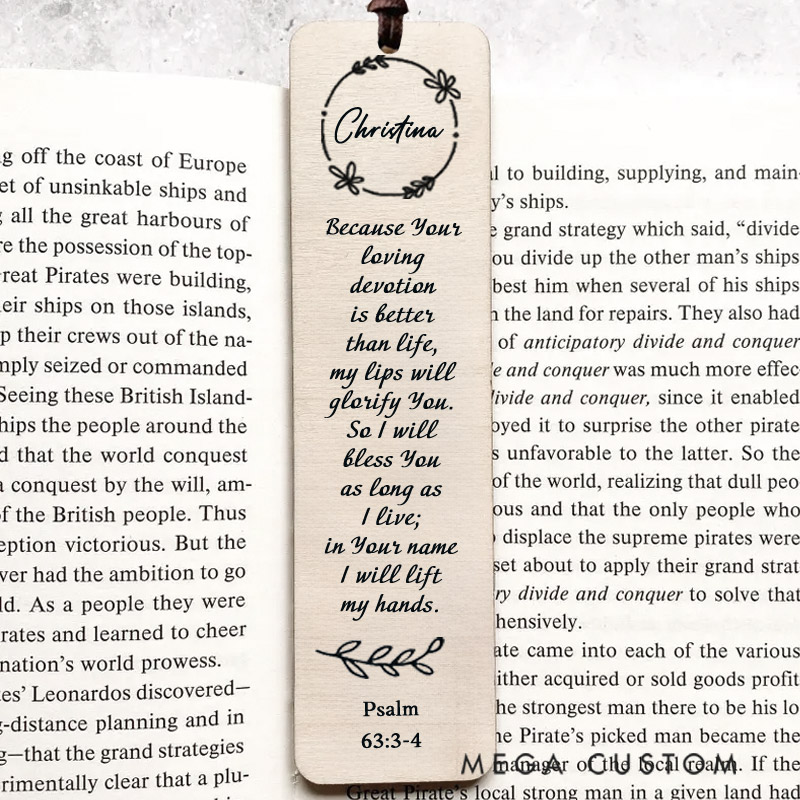 g off the coast of Europe
et of unsinkable ships and
all the great harbours of
re the possession of the top-
reat Pirates were building,
eir ships on those islands,
p their crews out of the na-
mply seized or commanded
Seeing these British Island-
hips the people around the
d that the world conquest
a conquest by the will, am-
f the British people. Thus
eption victorious. But the
ver had the ambition to go
ld. As a people they were
rates and learned to cheer
nation's world prowess.
tes' Leonardos discovered—
g-distance planning and in
g—that the grand strategies
rimentally clear that a plu-
Christina
Because Your
loving
devotion
is better
than life,
my lips will
glorify You.
So I will
bless You
as long as
I live;
in Your name
I will lift
my hands.
Psalm
63:3-4
l to building, supplying, and main-
y's ships.
e grand strategy which said, “divide
ou divide up the other man's ships
best him when several of his ships
n the land for repairs. They also had
of anticipatory divide and conquer
e and conquer was much more effec-
divide and conquer, since it enabled
oyed it to surprise the other pirate
s unfavorable to the latter. So the
of the world, realizing that dull peo
ous and that the only people who
displace the supreme pirates were
set about to apply their grand strat
ry divide and conquer to solve that
hensively.
ate came into each of the various
ither acquired or sold goods profit
he strongest man there to be his lo
he Pirate's picked man became the
manager of the local realm. If the
Great Pirate's local strong man in a given land had
MEGA CUSTOM